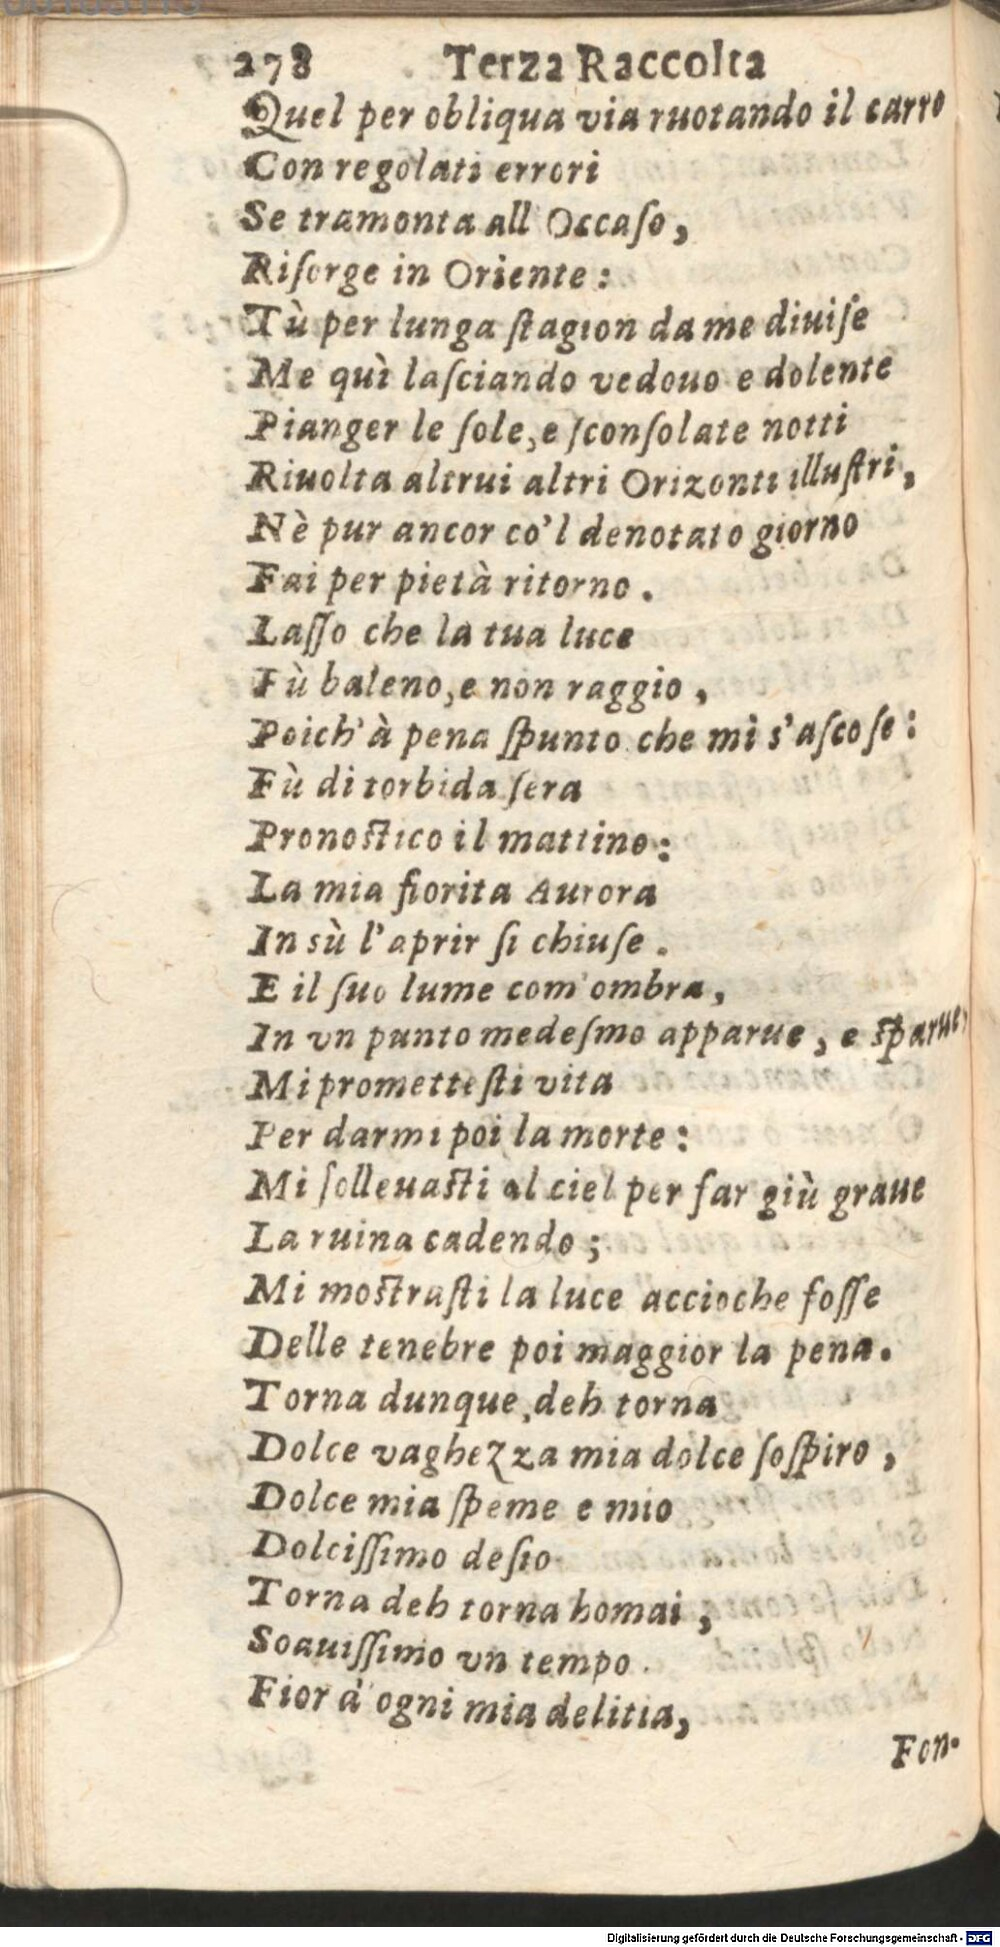 278 Terza Raccolta
Quel per obliqua via ruotando il carro
Con regolati errori
Se tramonta all Occaſo,
Riſorge in Oriente:
Tù per lunga ſtagion da me diuiſe
Me quì laſciando vedouo e dolente
Pianger le ſole, e ſconſolate notti
Riuolta altrui altri Orizonti illuſtri,
Nè pur ancor co'l denotato giorno
Fai per pietà ritorno.
Laſſo che la tua luce
Fù baleno, e non raggio,
Poich'à pena ſpunto che mi s'aſcoſe:
Fù di torbida ſera
Pronoſtico il mattino:
La mia fiorita Aurora
In sù l'aprir ſi chiuſe.
E il ſuo lume com'ombra,
In vn punto medeſmo apparue, e ſparue,
Mi prometteſti vita
Per darmi poi la morte:
Mi ſolleuaſti al ciel per far giù graue
La ruina cadendo;
Mi moſtraſti la luce accioche foſſe
Delle tenebre poi maggior la pena.
Torna dunque, deh torna
Dolce vaghezza mia dolce ſoſpiro,
Dolce mia ſpeme e mio
Dolciſſimo deſio
Torna deh torna homai,
Soauiſſimo vn tempo.
Fior d'ogni mia delitia,
Fon-
Digitalisierung gefördert durch die Deutsche Forschungsgemeinschaft - DFG